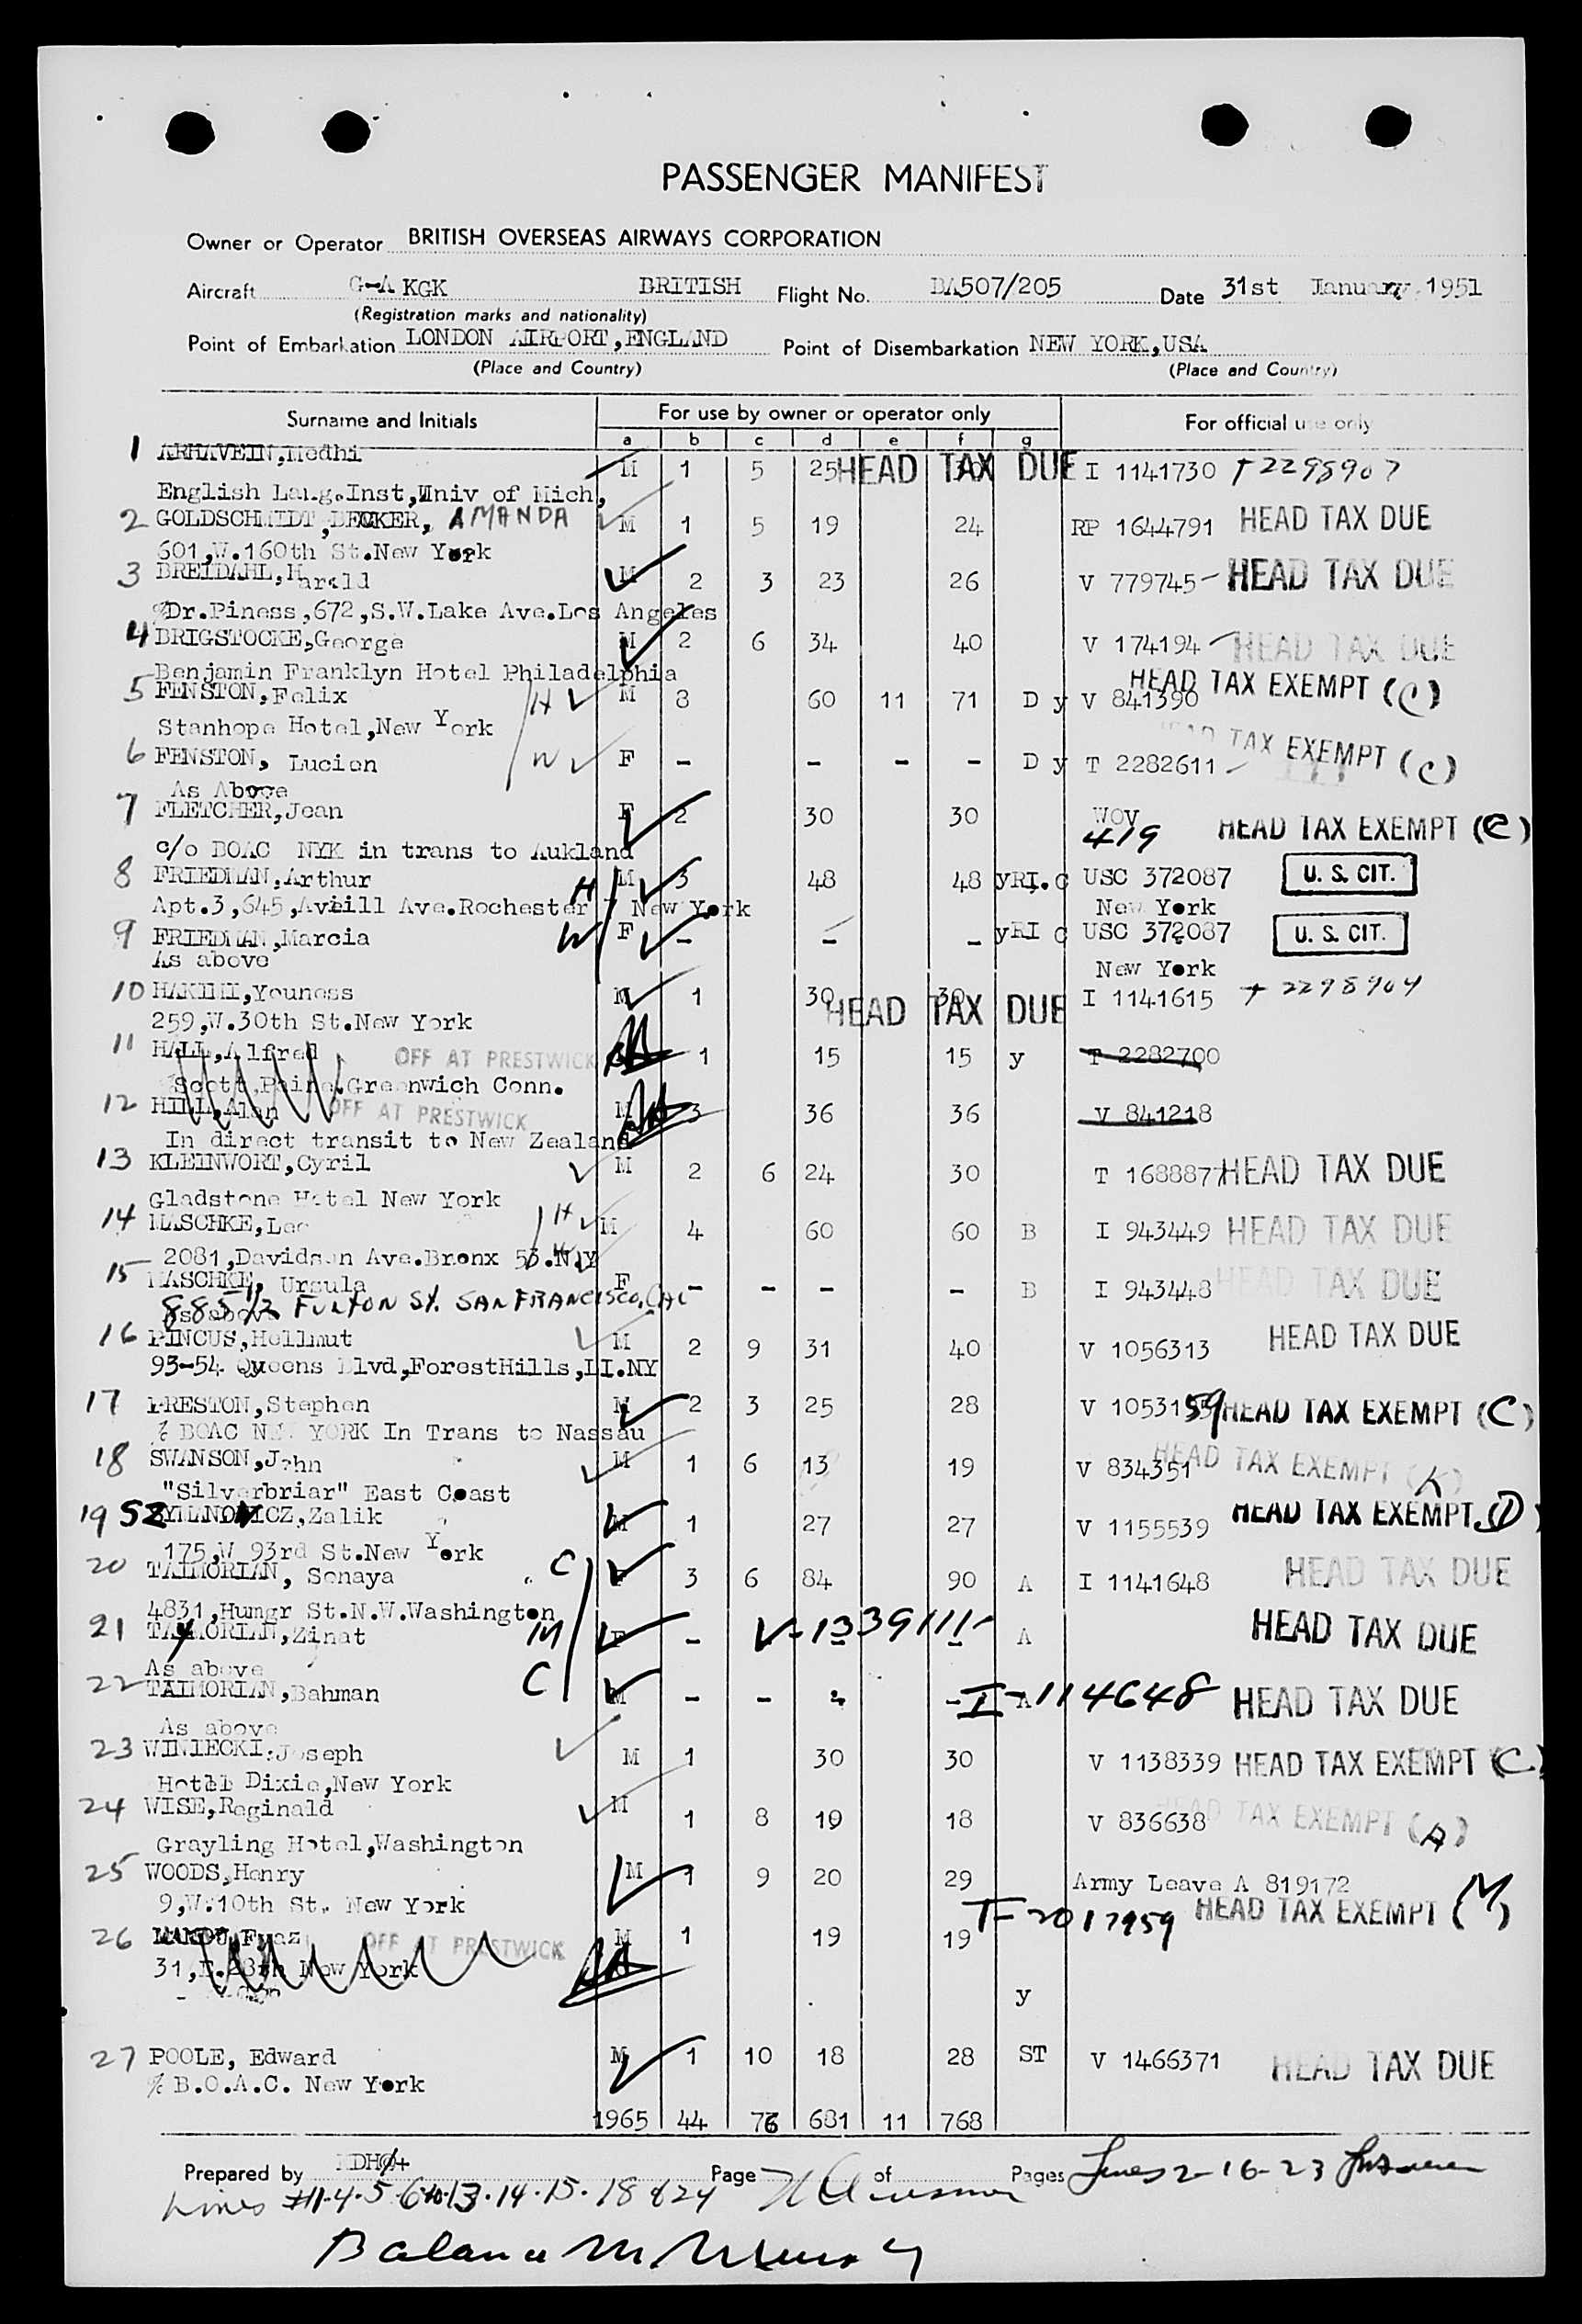 PASSENGER MANIFEST
Owner or Operator BRITISH OVERSEAS AIRWAYS CORPORATION
Aircraft G-A KGK BRITISH Flight No. BA507/205 Date 31st January, 1951
(Registration marks and nationality)
Point of Embarkation LONDON AIRPORT,ENGLAND Point of Disembarkation NEW YORK,USA
(Place and Country) (Place and Country)
Surname and Initials For use by owner or operator only For official use only
a b c d e f g
1 ARHAVEIN,Medhi M 1 5 25 30 HEAD TAX DUE I 1141730 T 2298907
English Lang.Inst,Univ of Mich,
2 GOLDSCHMIDT,DECKER, AMANDA M 1 5 19 24 RP 1644791 HEAD TAX DUE
601,W.160th St.New York
3 BREIDAHL,Harald M 2 3 23 26 V 779745 HEAD TAX DUE
%Dr.Piness,672,S.W.Lake Ave.Los Angeles
4 BRIGSTOCKE,George M 2 6 34 40 V 174194 HEAD TAX DUE
Benjamin Franklyn Hotel Philadelphia
5 FENSTON,Felix H M 3 60 11 71 D y V 841390 HEAD TAX EXEMPT (C)
Stanhope Hotel,New York
6 FENSTON, Lucien W F - - - - D y T 2282611 HEAD TAX EXEMPT (C)
As Above
7 FLETCHER,Jean F 2 30 30 WOV 419 HEAD TAX EXEMPT (C)
c/o BOAC NYK in trans to Aukland
8 FRIEDMAN,Arthur H M 3 48 48 yRI.C USC 372087 U. S. CIT.
Apt.3,645,Aveill Ave.Rochester 7 New York New York
9 FRIEDMAN,Marcia W F - - - yRI C USC 372087 U. S. CIT.
As above New York
10 HAKIMI,Youness M 1 30 30 HEAD TAX DUE I 1141615 T 2298904
259,W.30th St.New York
11 HALL,Alfred OFF AT PRESTWICK 1 15 15 y T 2282700
%Scott,Paine,Greenwich Conn.
12 HILL,Alan OFF AT PRESTWICK M 3 36 36 V 841218
In direct transit to New Zealand
13 KLEINWORT,Cyril M 2 6 24 30 T 1688877 HEAD TAX DUE
Gladstone Hotel New York
14 MASCHKE,Leo H M 4 60 60 B I 943449 HEAD TAX DUE
2081,Davidson Ave.Bronx 53.N.Y W
15 MASCHKE, Ursula F - - - - B I 943448 HEAD TAX DUE
As above 885 1/2 FULTON ST. SAN FRANCISCO, CAL
16 PINCUS,Hellmut M 2 9 31 40 V 1056313 HEAD TAX DUE
93-54 Queens Blvd,ForestHills,LI.NY
17 PRESTON,Stephen M 2 3 25 28 V 1053159 HEAD TAX EXEMPT (C)
% BOAC NEW YORK In Trans to Nassau
18 SWANSON,John M 1 6 13 19 V 834351 HEAD TAX EXEMPT (K)
"Silverbriar" East Coast
19 SZYLNOWICZ,Zalik M 1 27 27 V 1155539 HEAD TAX EXEMPT (D)
175,W 93rd St.New York
20 TAIMORIAN, Sonaya C F 3 6 84 90 A I 1141648 HEAD TAX DUE
4831,Humgr St.N.W.Washington
21 TAYMORIAN,Zinat M F - V-1339111 - A HEAD TAX DUE
As above
22 TAIMORIAN,Bahman C M - - - - A I-114648 HEAD TAX DUE
As above
23 WINIECKI,Joseph M 1 30 30 V 1138339 HEAD TAX EXEMPT (C)
Hotel Dixie,New York
24 WISE,Reginald M 1 8 10 18 V 836638 HEAD TAX EXEMPT (A)
Grayling Hotel,Washington
25 WOODS,Henry M 1 9 20 29 Army Leave A 819172
9,W.10th St. New York T-2017959 HEAD TAX EXEMPT (M)
26 OFF AT PRESTWICK M 1 19 19
New York
y
27 POOLE, Edward M 1 10 18 28 ST V 1466371 HEAD TAX DUE
% B.O.A.C. New York
1965 44 76 681 11 768
Prepared by Page of Pages Lines 2-16-23
Lines #1-4-5-6-10-13-14-15-18 & 24
Balance